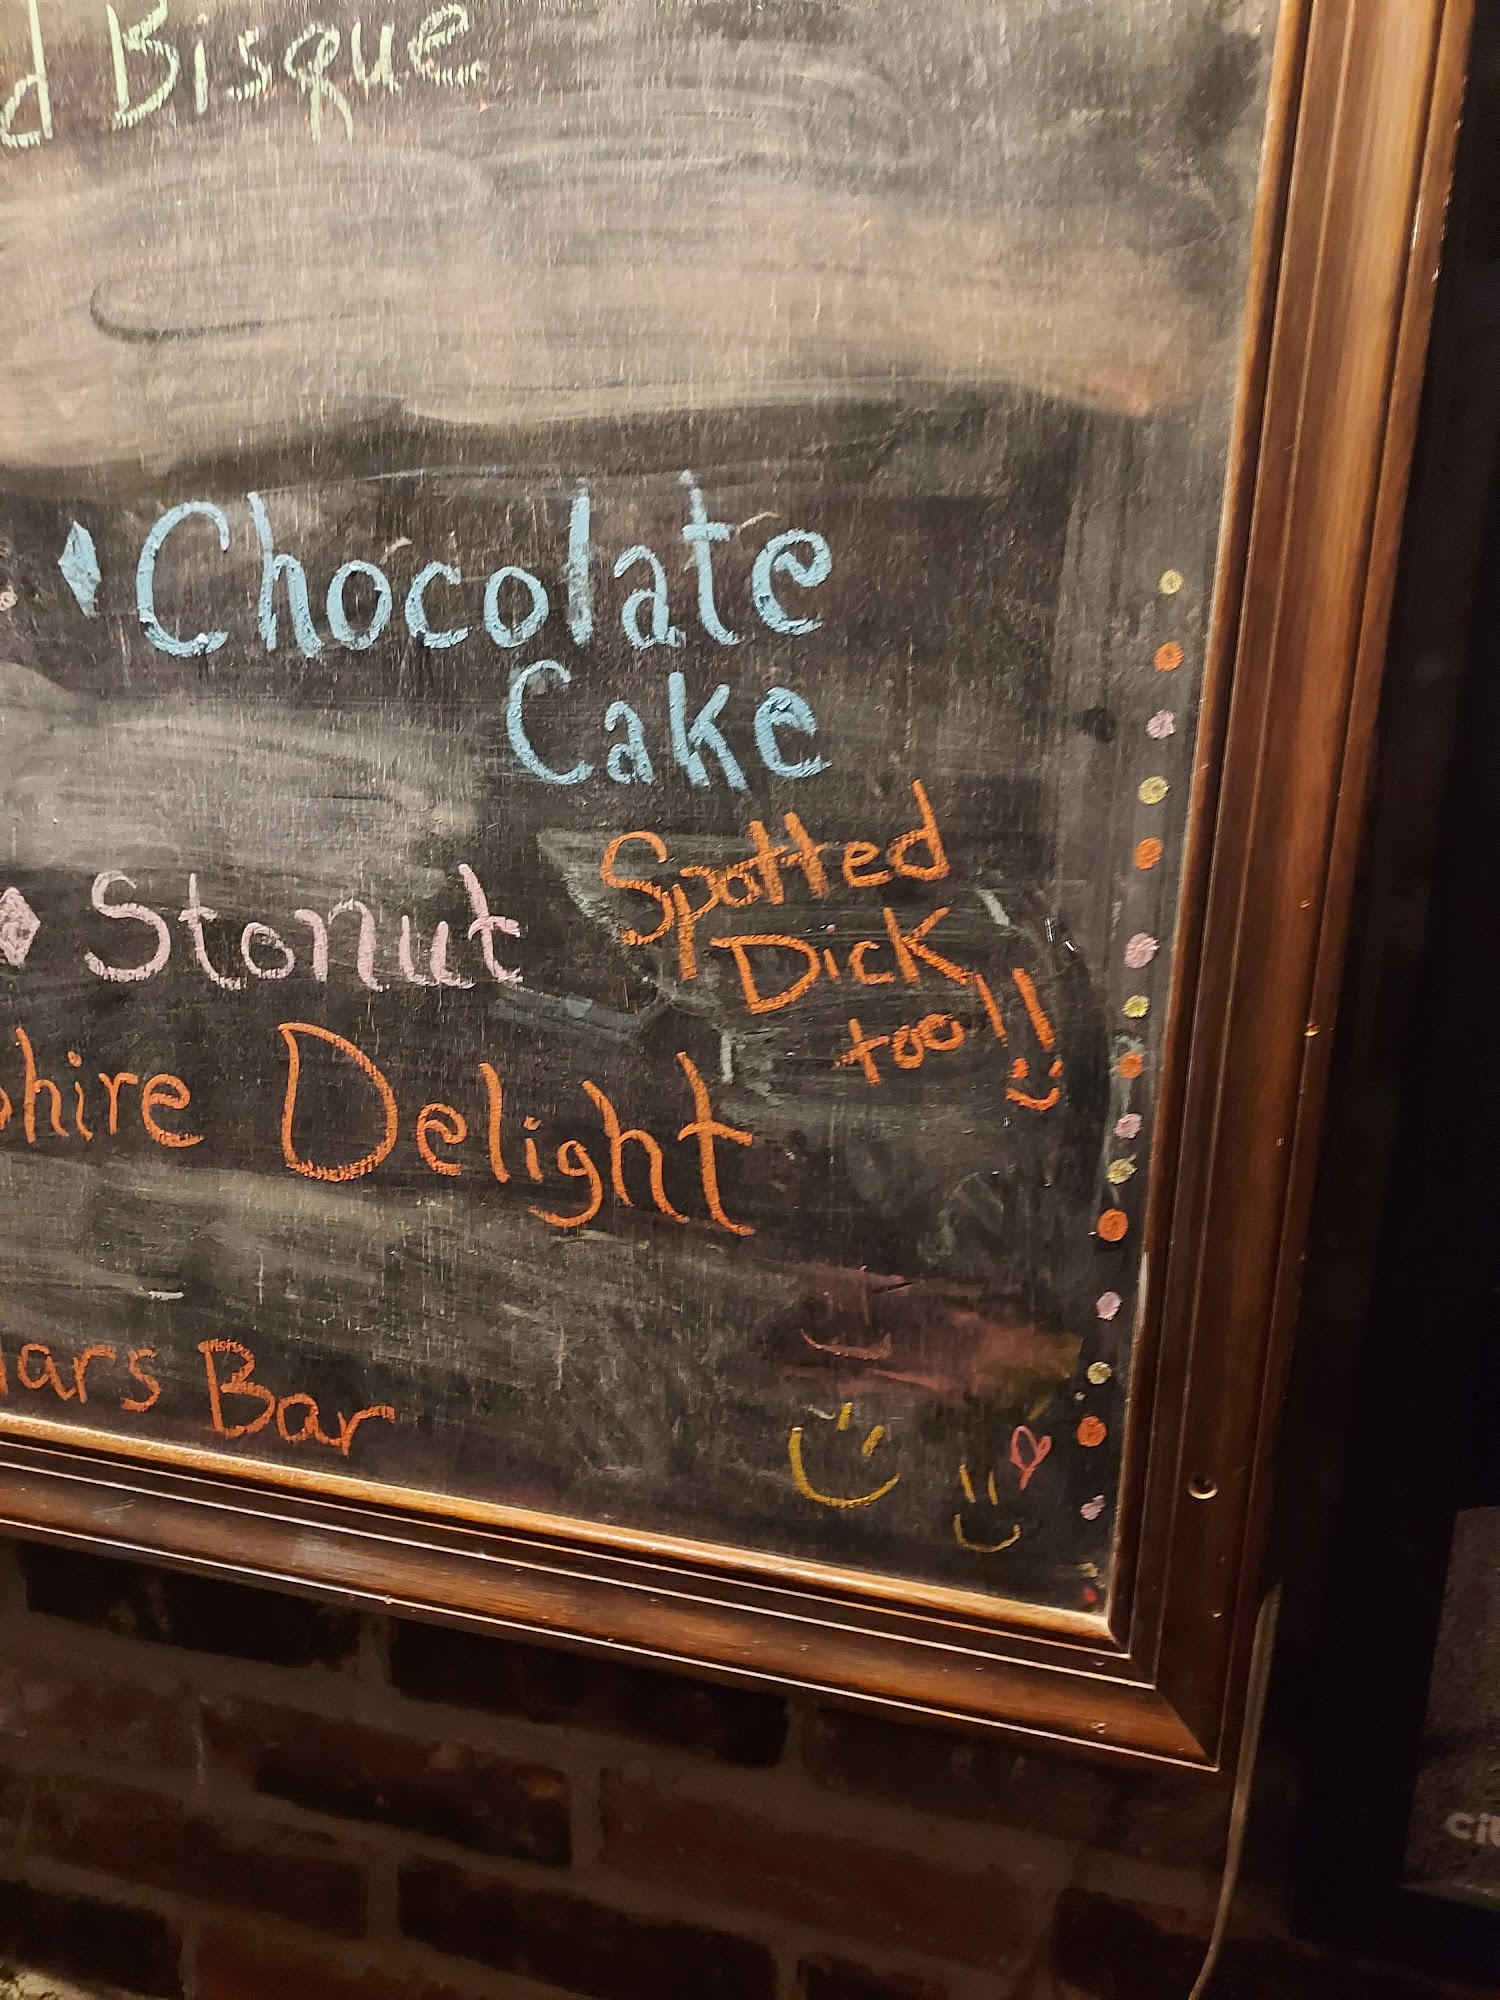 d Bisque
Chocolate
Cake
Spotted
Dick
too!!
Stonut
hire Delight
ars Bar
cit